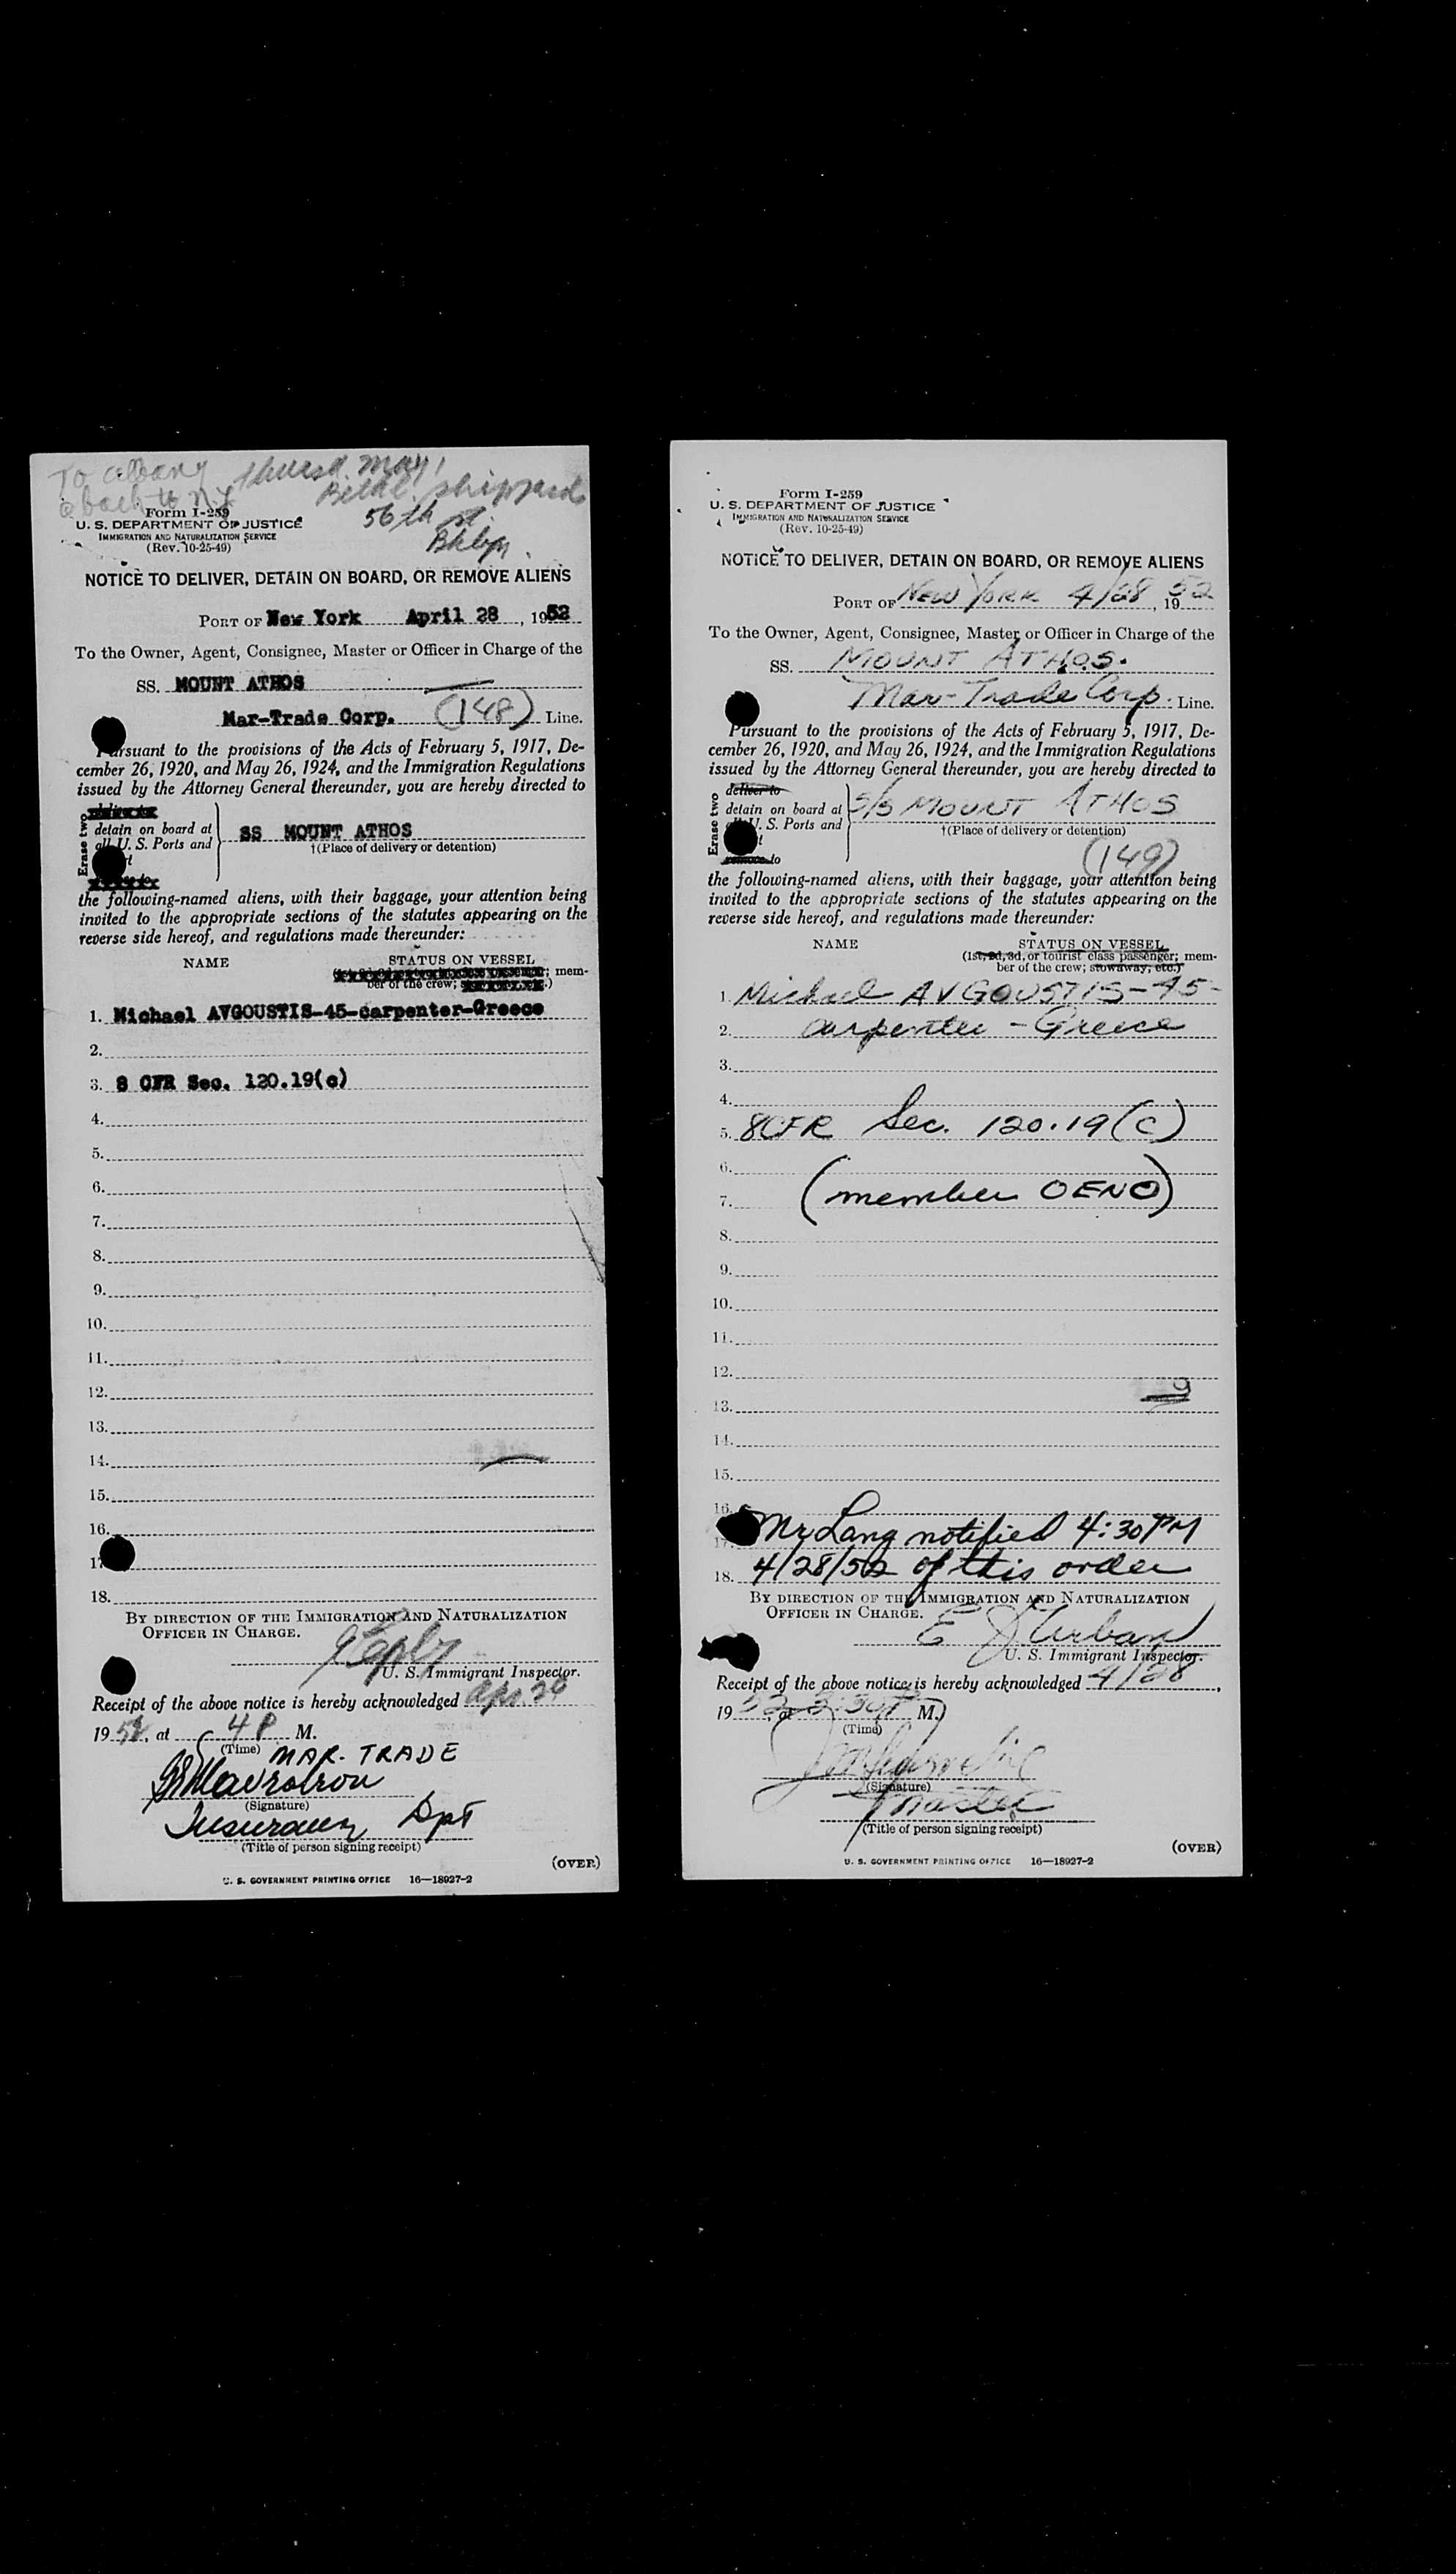 To Albany Thursd. May 1
& back to N.Y. shipyard
56th St
Bklyn.
Form I-259
U. S. DEPARTMENT OF JUSTICE
IMMIGRATION AND NATURALIZATION SERVICE
(Rev. 10-25-49)
NOTICE TO DELIVER, DETAIN ON BOARD, OR REMOVE ALIENS
PORT OF New York April 28, 1952
To the Owner, Agent, Consignee, Master or Officer in Charge of the
SS. MOUNT ATHOS
Mar-Trade Corp. (148) Line.
Pursuant to the provisions of the Acts of February 5, 1917, De-
cember 26, 1920, and May 26, 1924, and the Immigration Regulations
issued by the Attorney General thereunder, you are hereby directed to
Erase two
detain on board at
all U. S. Ports and
SS MOUNT ATHOS
†(Place of delivery or detention)
the following-named aliens, with their baggage, your attention being
invited to the appropriate sections of the statutes appearing on the
reverse side hereof, and regulations made thereunder:
NAME STATUS ON VESSEL
; mem-
ber of the crew; .)
1. Michael AVGOUSTIS-45-carpenter-Greece
2.
3. 8 CFR Sec. 120.19(c)
4.
5.
6.
7.
8.
9.
10.
11.
12.
13.
14.
15.
16.
17
18.
BY DIRECTION OF THE IMMIGRATION AND NATURALIZATION
OFFICER IN CHARGE.
U. S. Immigrant Inspector.
Receipt of the above notice is hereby acknowledged Apr. 29
1952, at 4 P M.
(Time) MAR. TRADE
(Signature)
Insurance Dpt
(Title of person signing receipt)
(OVER)
U. S. GOVERNMENT PRINTING OFFICE 16—18927-2
Form I-259
U. S. DEPARTMENT OF JUSTICE
IMMIGRATION AND NATURALIZATION SERVICE
(Rev. 10-25-49)
NOTICE TO DELIVER, DETAIN ON BOARD, OR REMOVE ALIENS
PORT OF NEW YORK 4/28, 1952
To the Owner, Agent, Consignee, Master or Officer in Charge of the
SS. MOUNT ATHOS.
Mar-Trade Corp. Line.
Pursuant to the provisions of the Acts of February 5, 1917, De-
cember 26, 1920, and May 26, 1924, and the Immigration Regulations
issued by the Attorney General thereunder, you are hereby directed to
Erase two
deliver to
detain on board at
U. S. Ports and
remove to
S/S MOUNT ATHOS
†(Place of delivery or detention)
(149)
the following-named aliens, with their baggage, your attention being
invited to the appropriate sections of the statutes appearing on the
reverse side hereof, and regulations made thereunder:
NAME STATUS ON VESSEL
(1st, 2d, 3d, or tourist class passenger; mem-
ber of the crew; stowaway, etc.)
1. Michael AVGOUSTIS-45-
2. carpenter - Greece
3.
4.
5. 8CFR Sec. 120.19(c)
6.
7. (member OENO)
8.
9.
10.
11.
12.
13.
14.
15.
16.
17. Mr Lang notified 4:30 PM
18. 4/28/52 of this order
BY DIRECTION OF THE IMMIGRATION AND NATURALIZATION
OFFICER IN CHARGE.
E J Urban
U. S. Immigrant Inspector.
Receipt of the above notice is hereby acknowledged 4/28,
1952, at 3:30 P M.
(Time)
(Signature)
Master
(Title of person signing receipt)
(OVER)
U. S. GOVERNMENT PRINTING OFFICE 16—18927-2